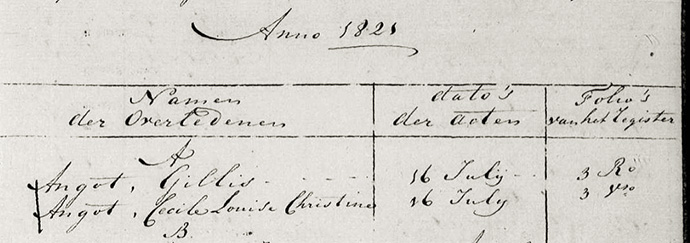 Anno 1821
Namen der Overledenen
dato's der Acten
Folio's van het Register
A
Angot, Gillis 16 July 3 Ro
Angot, Cecile Louise Christine 16 July 3 Vso
B.